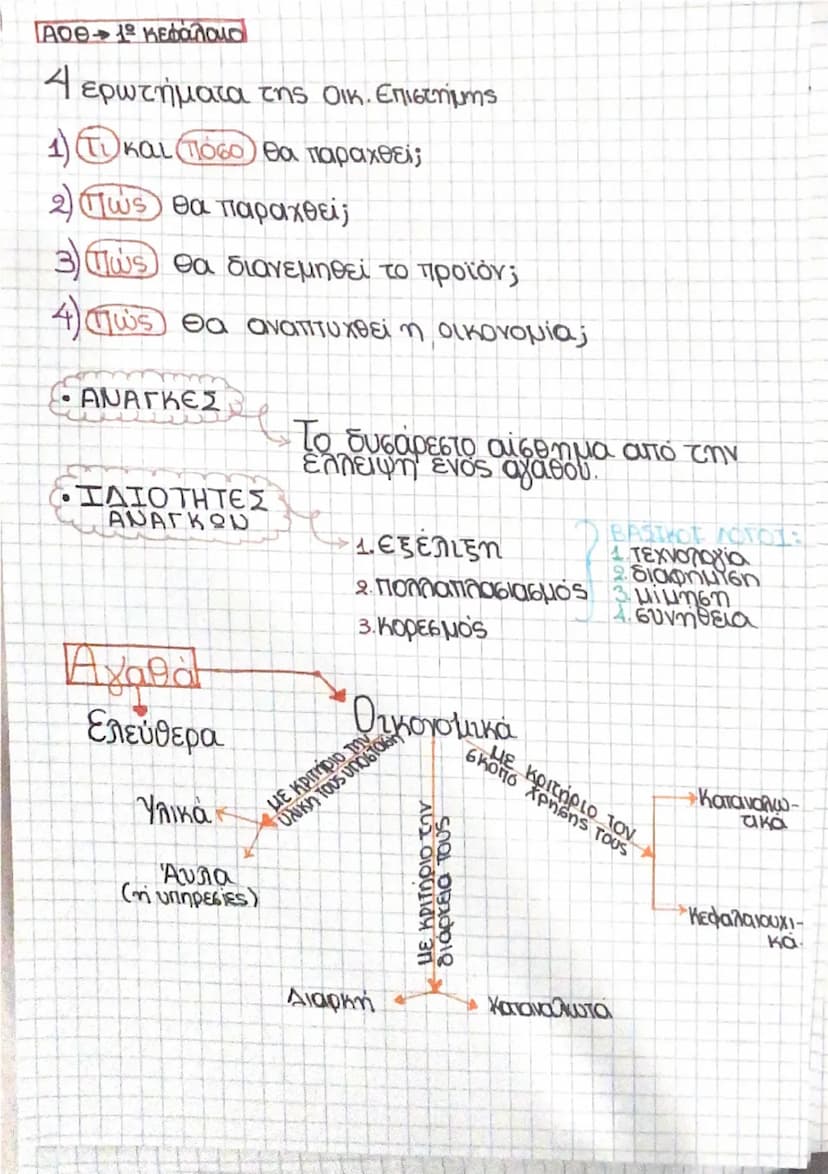 ΑΟΘ → 1º κεφάλαιο
4 ερωτήματα της Οικ. Επιστήμης
1) Τι και πόσο θα παραχθεί;
2) Πώς θα παραχθεί;
3) Πώς θα διανεμηθεί το προϊόν;
4) Πώς θα αναπτυχθεί η οικονομία;
• ΑΝΑΓΚΕΣ
Το δυσάρεστο αίσθημα από την
έλλειψη ενός αγαθού.
• ΙΔΙΟΤΗΤΕΣ
ΑΝΑΓΚΩΝ
1. Εξέλιξη
2. Πολλαπλασιασμός
3. Κορεσμός
ΒΑΣΙΚΟΙ ΛΟΓΟΙ:
1. τεχνολογία
2. διαφήμιση
3. μίμηση
4. συνήθεια
Αγαθά
Ελεύθερα
Οικονομικά
με κριτήριο την
υλική τους υπόσταση
Υλικά
Άυλα
(ή υπηρεσίες)
με κριτήριο την
διάρκεια τους
Διαρκή
Καταναλωτά
με κριτήριο τον
σκοπό χρήσης τους
Καταναλω-
τικά
Κεφαλαιουχι-
κά.